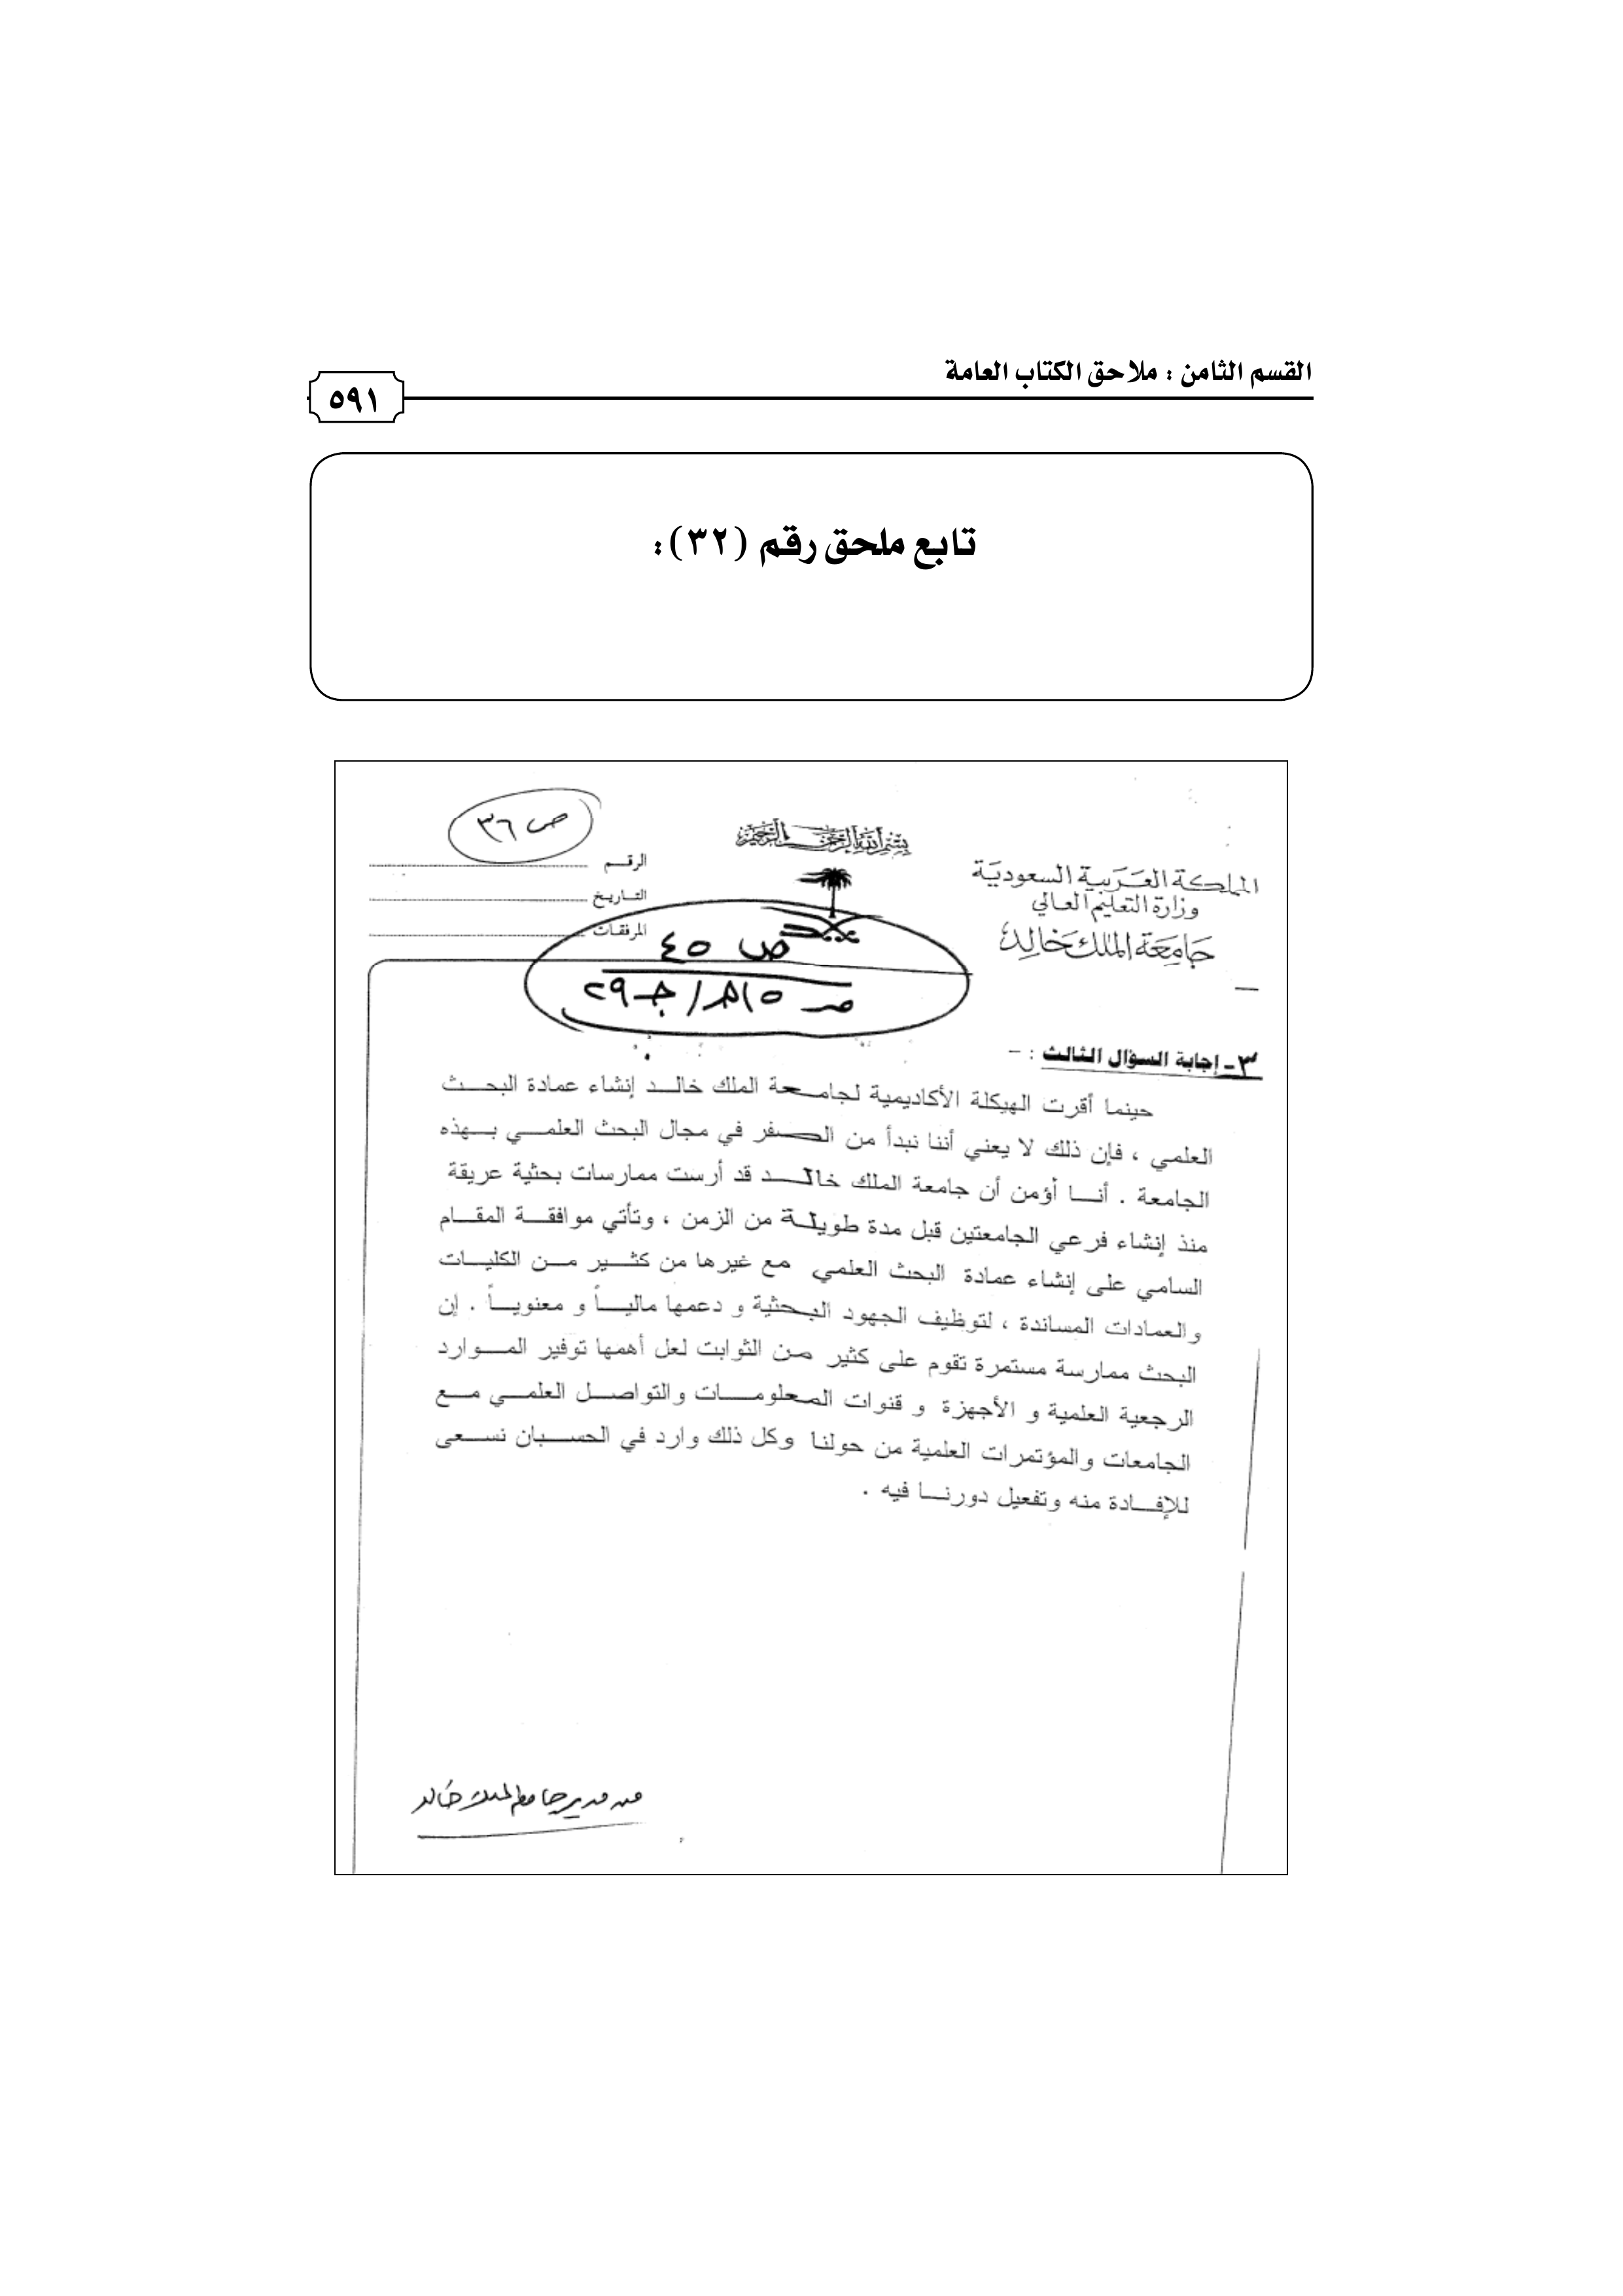 القسم الثامن : ملاحق الكتاب العامة
٥٩١
تابع ملحق رقم (٣٢):
ص ٣٦
بسم الله الرحمن الرحيم
المملكة العربية السعودية
وزارة التعليم العالي
جامعة الملك خالد
الرقم
التاريخ
المرفقات
ص ٤٥
٣- إجابة السؤال الثالث : -
حينما أقرت الهيكلة الأكاديمية لجامعة الملك خالد إنشاء عمادة البحث
العلمي ، فإن ذلك لا يعني أننا نبدأ من الصفر في مجال البحث العلمي بهذه
الجامعة . أنا أؤمن أن جامعة الملك خالد قد أرست ممارسات بحثية عريقة
منذ إنشاء فرعي الجامعتين قبل مدة طويلة من الزمن ، وتأتي موافقة المقام
السامي على إنشاء عمادة البحث العلمي مع غيرها من كثير من الكليات
والعمادات المساندة ، لتوظيف الجهود البحثية و دعمها مالياً و معنوياً . إن
البحث ممارسة مستمرة تقوم على كثير من الثوابت لعل أهمها توفير الموارد
الرجعية العلمية و الأجهزة و قنوات المعلومات والتواصل العلمي مع
الجامعات والمؤتمرات العلمية من حولنا وكل ذلك وارد في الحسبان نسعى
للإفادة منه وتفعيل دورنا فيه .
من مدير جامعة الملك خالد